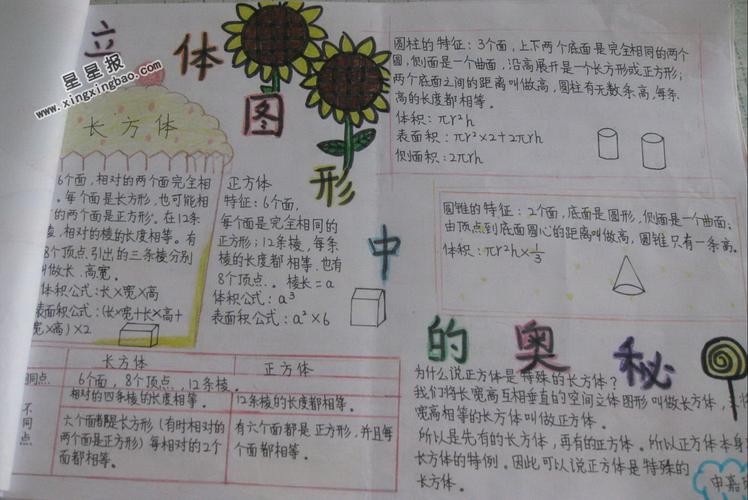 立体图形中的奥秘
星星报
www.xingxingbao.com
长方体
6个面，相对的两个面完全相
。每个面是长方形，也可能相
的两个面是正方形。在12条
，相对的棱的长度相等。有
8个顶点.引出的三条棱分别
叫做长.高宽。
体积公式：长×宽×高
表面积公式：(长×宽+长×高+
宽×高)×2
正方体
特征：6个面，
每个面是完全相同的
正方形；12条棱，每条
棱的长度都相等.也有
8个顶点.。棱长=a
体积公式：a³
表面积公式：a²×6
圆柱的特征：3个面，上下两个底面是完全相同的两个
圆，侧面是一个曲面，沿高展开是一个长方形或正方形；
两个底面之间的距离叫做高，圆柱有无数条高，每条
高的长度都相等。
体积：πr²h
表面积：πr²×2+2πrh
侧面积：2πrh
圆锥的特征：2个面，底面是圆形，侧面是一个曲面；
由顶点到底面圆心的距离叫做高，圆锥只有一条高。
体积：πr²h×1/3
长方体 正方体
同点 6个面，8个顶点，12条棱。
不同点
相对的四条棱的长度相等。 12条棱的长度都相等。
六个面都是长方形（有时相对的
两个面是正方形）每相对的2个
面都相等。
有六个面都是正方形，并且每
个面都相等。
为什么说正方体是特殊的长方体？
我们将长宽高互相垂直的空间立体图形叫做长方体，
宽高相等的长方体叫做正方体。
所以是先有的长方体，再有的正方体。所以正方体本身
长方体的特例。因此可以说正方体是特殊的
长方体。
申嘉